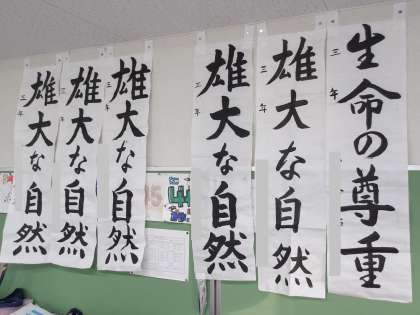 雄大な自然
三年
雄大な自然
三年
雄大な自然
三年
雄大な自然
三年
雄大な自然
三年
生命の尊重
三年